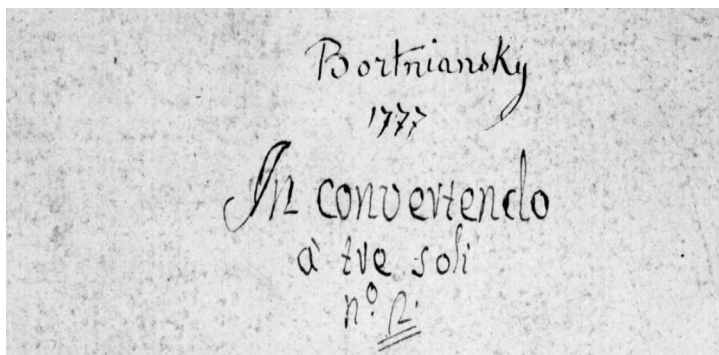 Bortniansky
1777
In convertendo
à tre soli
nº 2.